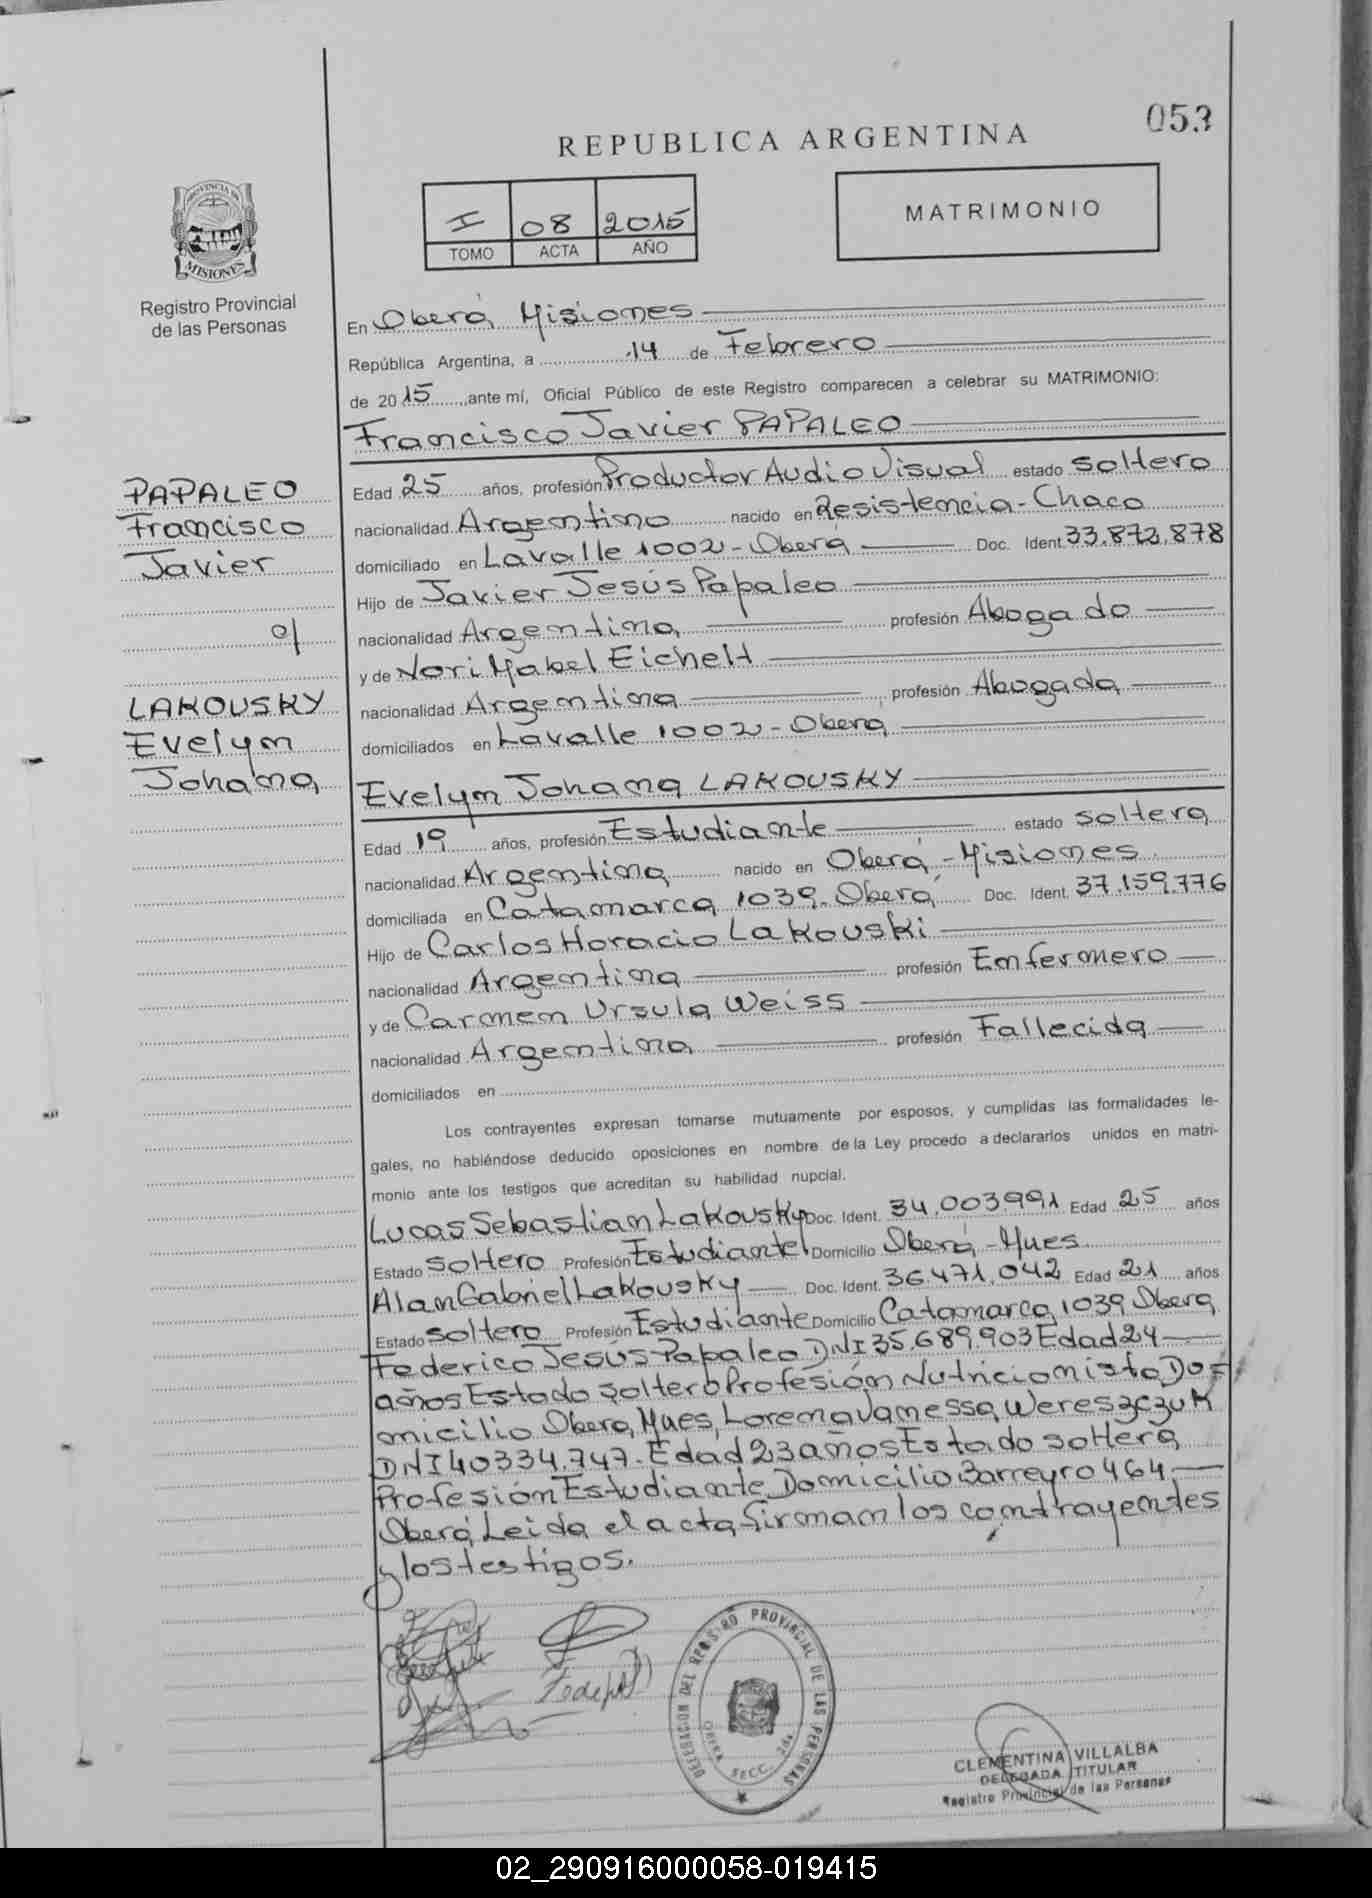 053
REPUBLICA ARGENTINA
I 08 2015
TOMO ACTA AÑO
MATRIMONIO
PROVINCIA DE
MISIONES
Registro Provincial
de las Personas
En Oberá Misiones
República Argentina, a 14 de Febrero
de 2015, ante mí, Oficial Público de este Registro comparecen a celebrar su MATRIMONIO:
Francisco Javier PAPALEO
PAPALEO
Francisco
Javier
c/
LAKOUSKY
Evelyn
Johana
Edad 25 años, profesión Productor AudioVisual estado soltero
nacionalidad Argentino nacido en Resistencia-Chaco
domiciliado en Lavalle 1002-Oberá Doc. Ident. 33.872.878
Hijo de Javier Jesús Papaleo
nacionalidad Argentina profesión Abogado
y de Nori Mabel Eichelt
nacionalidad Argentina profesión Abogada
domiciliados en Lavalle 1002-Oberá
Evelyn Johana LAKOUSKY
Edad 19 años, profesión Estudiante estado soltera
nacionalidad Argentina nacido en Oberá-Misiones
domiciliada en Catamarca 1039. Oberá Doc. Ident. 37.159.776
Hijo de Carlos Horacio Lakouski
nacionalidad Argentina profesión Enfermero
y de Carmen Ursula Weiss
nacionalidad Argentina profesión Fallecida
domiciliados en
Los contrayentes expresan tomarse mutuamente por esposos, y cumplidas las formalidades le-
gales, no habiéndose deducido oposiciones en nombre de la Ley procedo a declararlos unidos en matri-
monio ante los testigos que acreditan su habilidad nupcial.
Lucas Sebastian Lakousky Doc. Ident. 34.003.991 Edad 25 años
Estado soltero Profesión Estudiante Domicilio Oberá-Mnes
Alan Gabriel Lakousky Doc. Ident. 36.471.042 Edad 21 años
Estado soltero Profesión Estudiante Domicilio Catamarca 1039 Oberá
Federico Jesús Papaleo DNI 35.689.903 Edad 24
años Estado soltero Profesión Nutricionista Do=
micilio Oberá, Mnes, Lorena Vanessa Wereszczuk
DNI 40334.747. Edad 23 años Estado soltera
Profesión Estudiante Domicilio Barreyro 464
Oberá, Leida el acta, firman los contrayentes
y los testigos.
DELEGACION DEL REGISTRO PROVINCIAL DE LAS PERSONAS
OBERA SECC. 2da
CLEMENTINA VILLALBA
DELEGADA TITULAR
Registro Provincial de las Personas
02_290916000058-019415